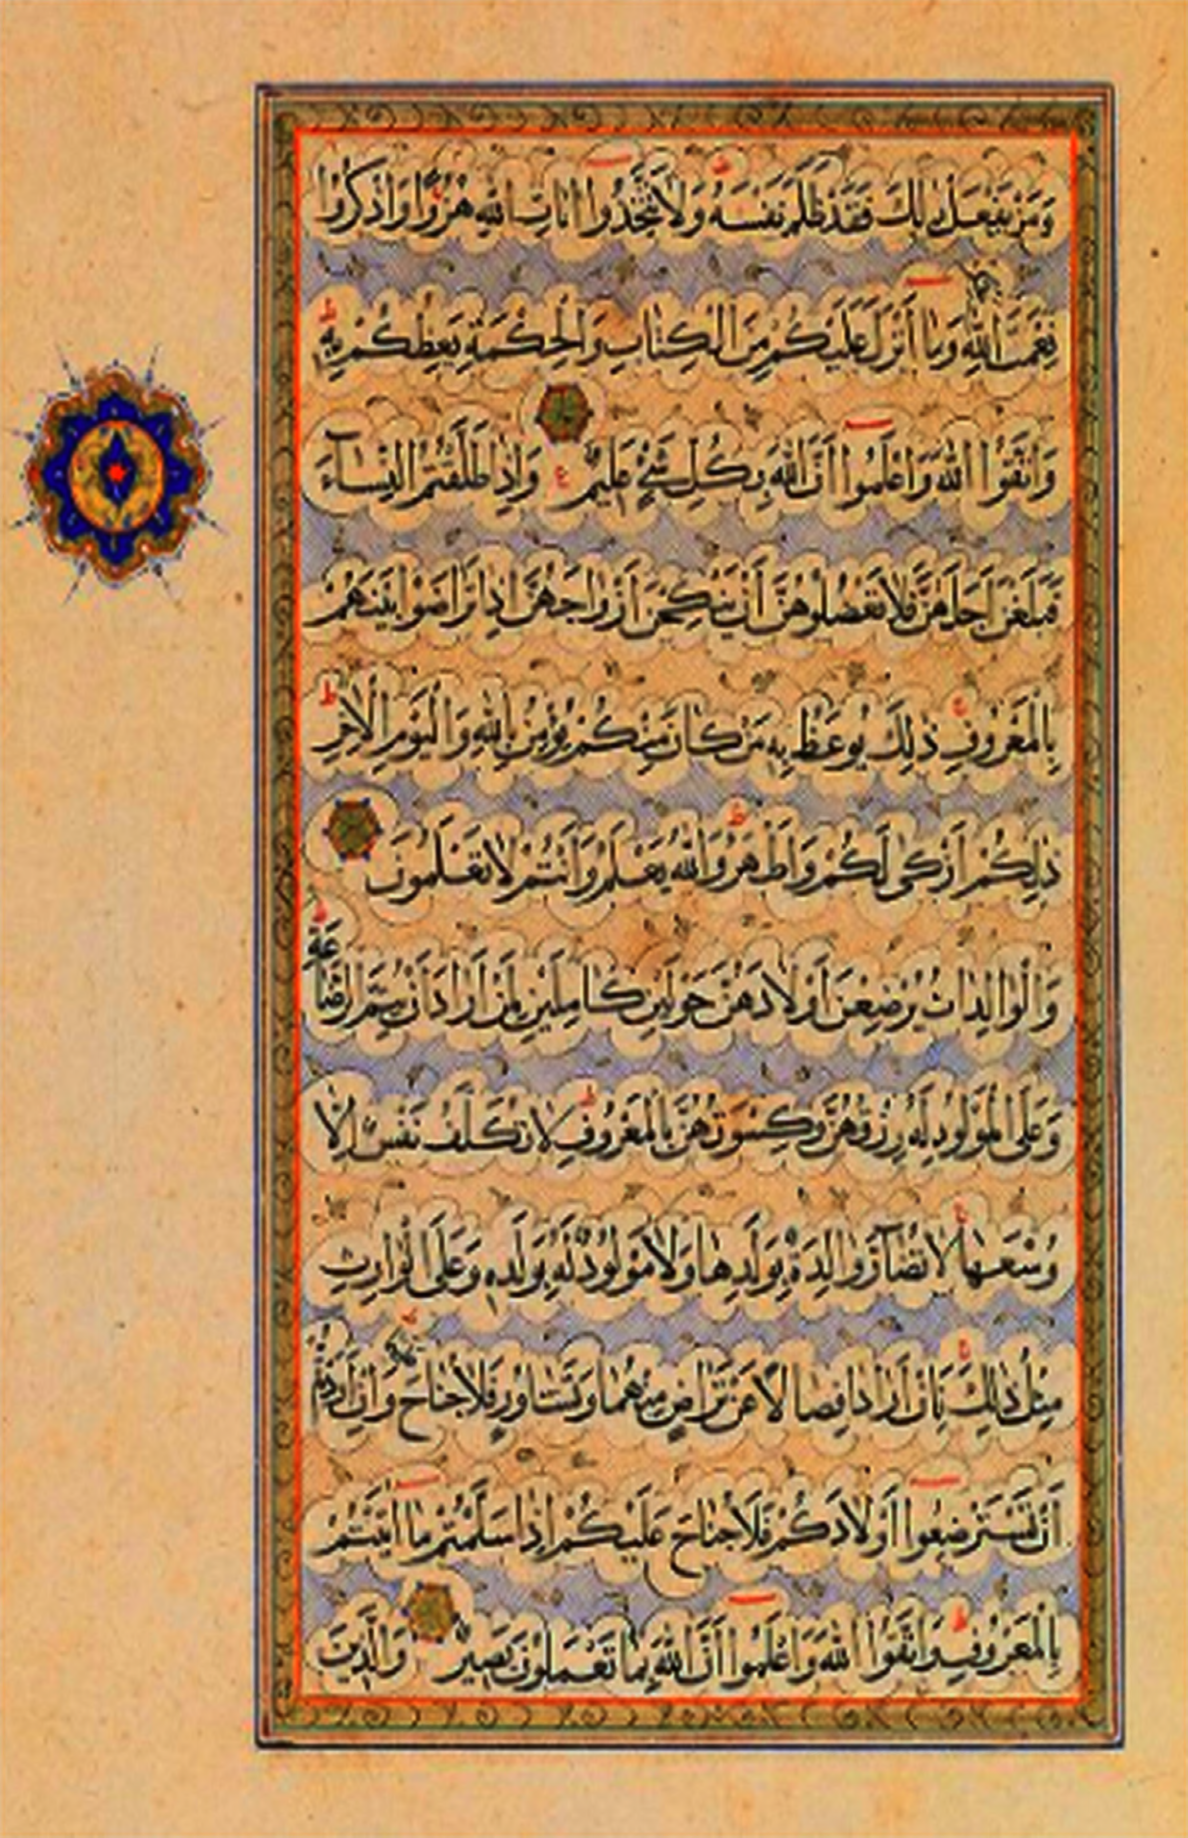 وَمَنْ يَفْعَلْ ذٰلِكَ فَقَدْ ظَلَمَ نَفْسَهُ وَلَا تَتَّخِذُوا اٰيَاتِ اللّٰهِ هُزُوًا وَاذْكُرُوا
نِعْمَتَ اللّٰهِ عَلَيْكُمْ وَمَا أَنْزَلَ عَلَيْكُمْ مِنَ الْكِتَابِ وَالْحِكْمَةِ يَعِظُكُمْ بِهِ
وَاتَّقُوا اللّٰهَ وَاعْلَمُوا أَنَّ اللّٰهَ بِكُلِّ شَيْءٍ عَلِيمٌ وَإِذَا طَلَّقْتُمُ النِّسَآءَ
فَبَلَغْنَ أَجَلَهُنَّ فَلَا تَعْضُلُوهُنَّ أَنْ يَنْكِحْنَ أَزْوَاجَهُنَّ إِذَا تَرَاضَوْا بَيْنَهُمْ
بِالْمَعْرُوفِ ذٰلِكَ يُوعَظُ بِهِ مَنْ كَانَ مِنْكُمْ يُؤْمِنُ بِاللّٰهِ وَالْيَوْمِ الْاٰخِرِ
ذٰلِكُمْ أَزْكٰى لَكُمْ وَأَطْهَرُ وَاللّٰهُ يَعْلَمُ وَأَنْتُمْ لَا تَعْلَمُونَ
وَالْوَالِدَاتُ يُرْضِعْنَ أَوْلَادَهُنَّ حَوْلَيْنِ كَامِلَيْنِ لِمَنْ أَرَادَ أَنْ يُتِمَّ الرَّضَاعَةَ
وَعَلَى الْمَوْلُودِ لَهُ رِزْقُهُنَّ وَكِسْوَتُهُنَّ بِالْمَعْرُوفِ لَا تُكَلَّفُ نَفْسٌ إِلَّا
وُسْعَهَا لَا تُضَآرَّ وَالِدَةٌ بِوَلَدِهَا وَلَا مَوْلُودٌ لَهُ بِوَلَدِهِ وَعَلَى الْوَارِثِ
مِثْلُ ذٰلِكَ فَإِنْ أَرَادَا فِصَالًا عَنْ تَرَاضٍ مِنْهُمَا وَتَشَاوُرٍ فَلَا جُنَاحَ عَلَيْهِمَا وَإِنْ أَرَدْتُمْ
أَنْ تَسْتَرْضِعُوا أَوْلَادَكُمْ فَلَا جُنَاحَ عَلَيْكُمْ إِذَا سَلَّمْتُمْ مَا اٰتَيْتُمْ
بِالْمَعْرُوفِ وَاتَّقُوا اللّٰهَ وَاعْلَمُوا أَنَّ اللّٰهَ بِمَا تَعْمَلُونَ بَصِيرٌ وَالَّذِينَ